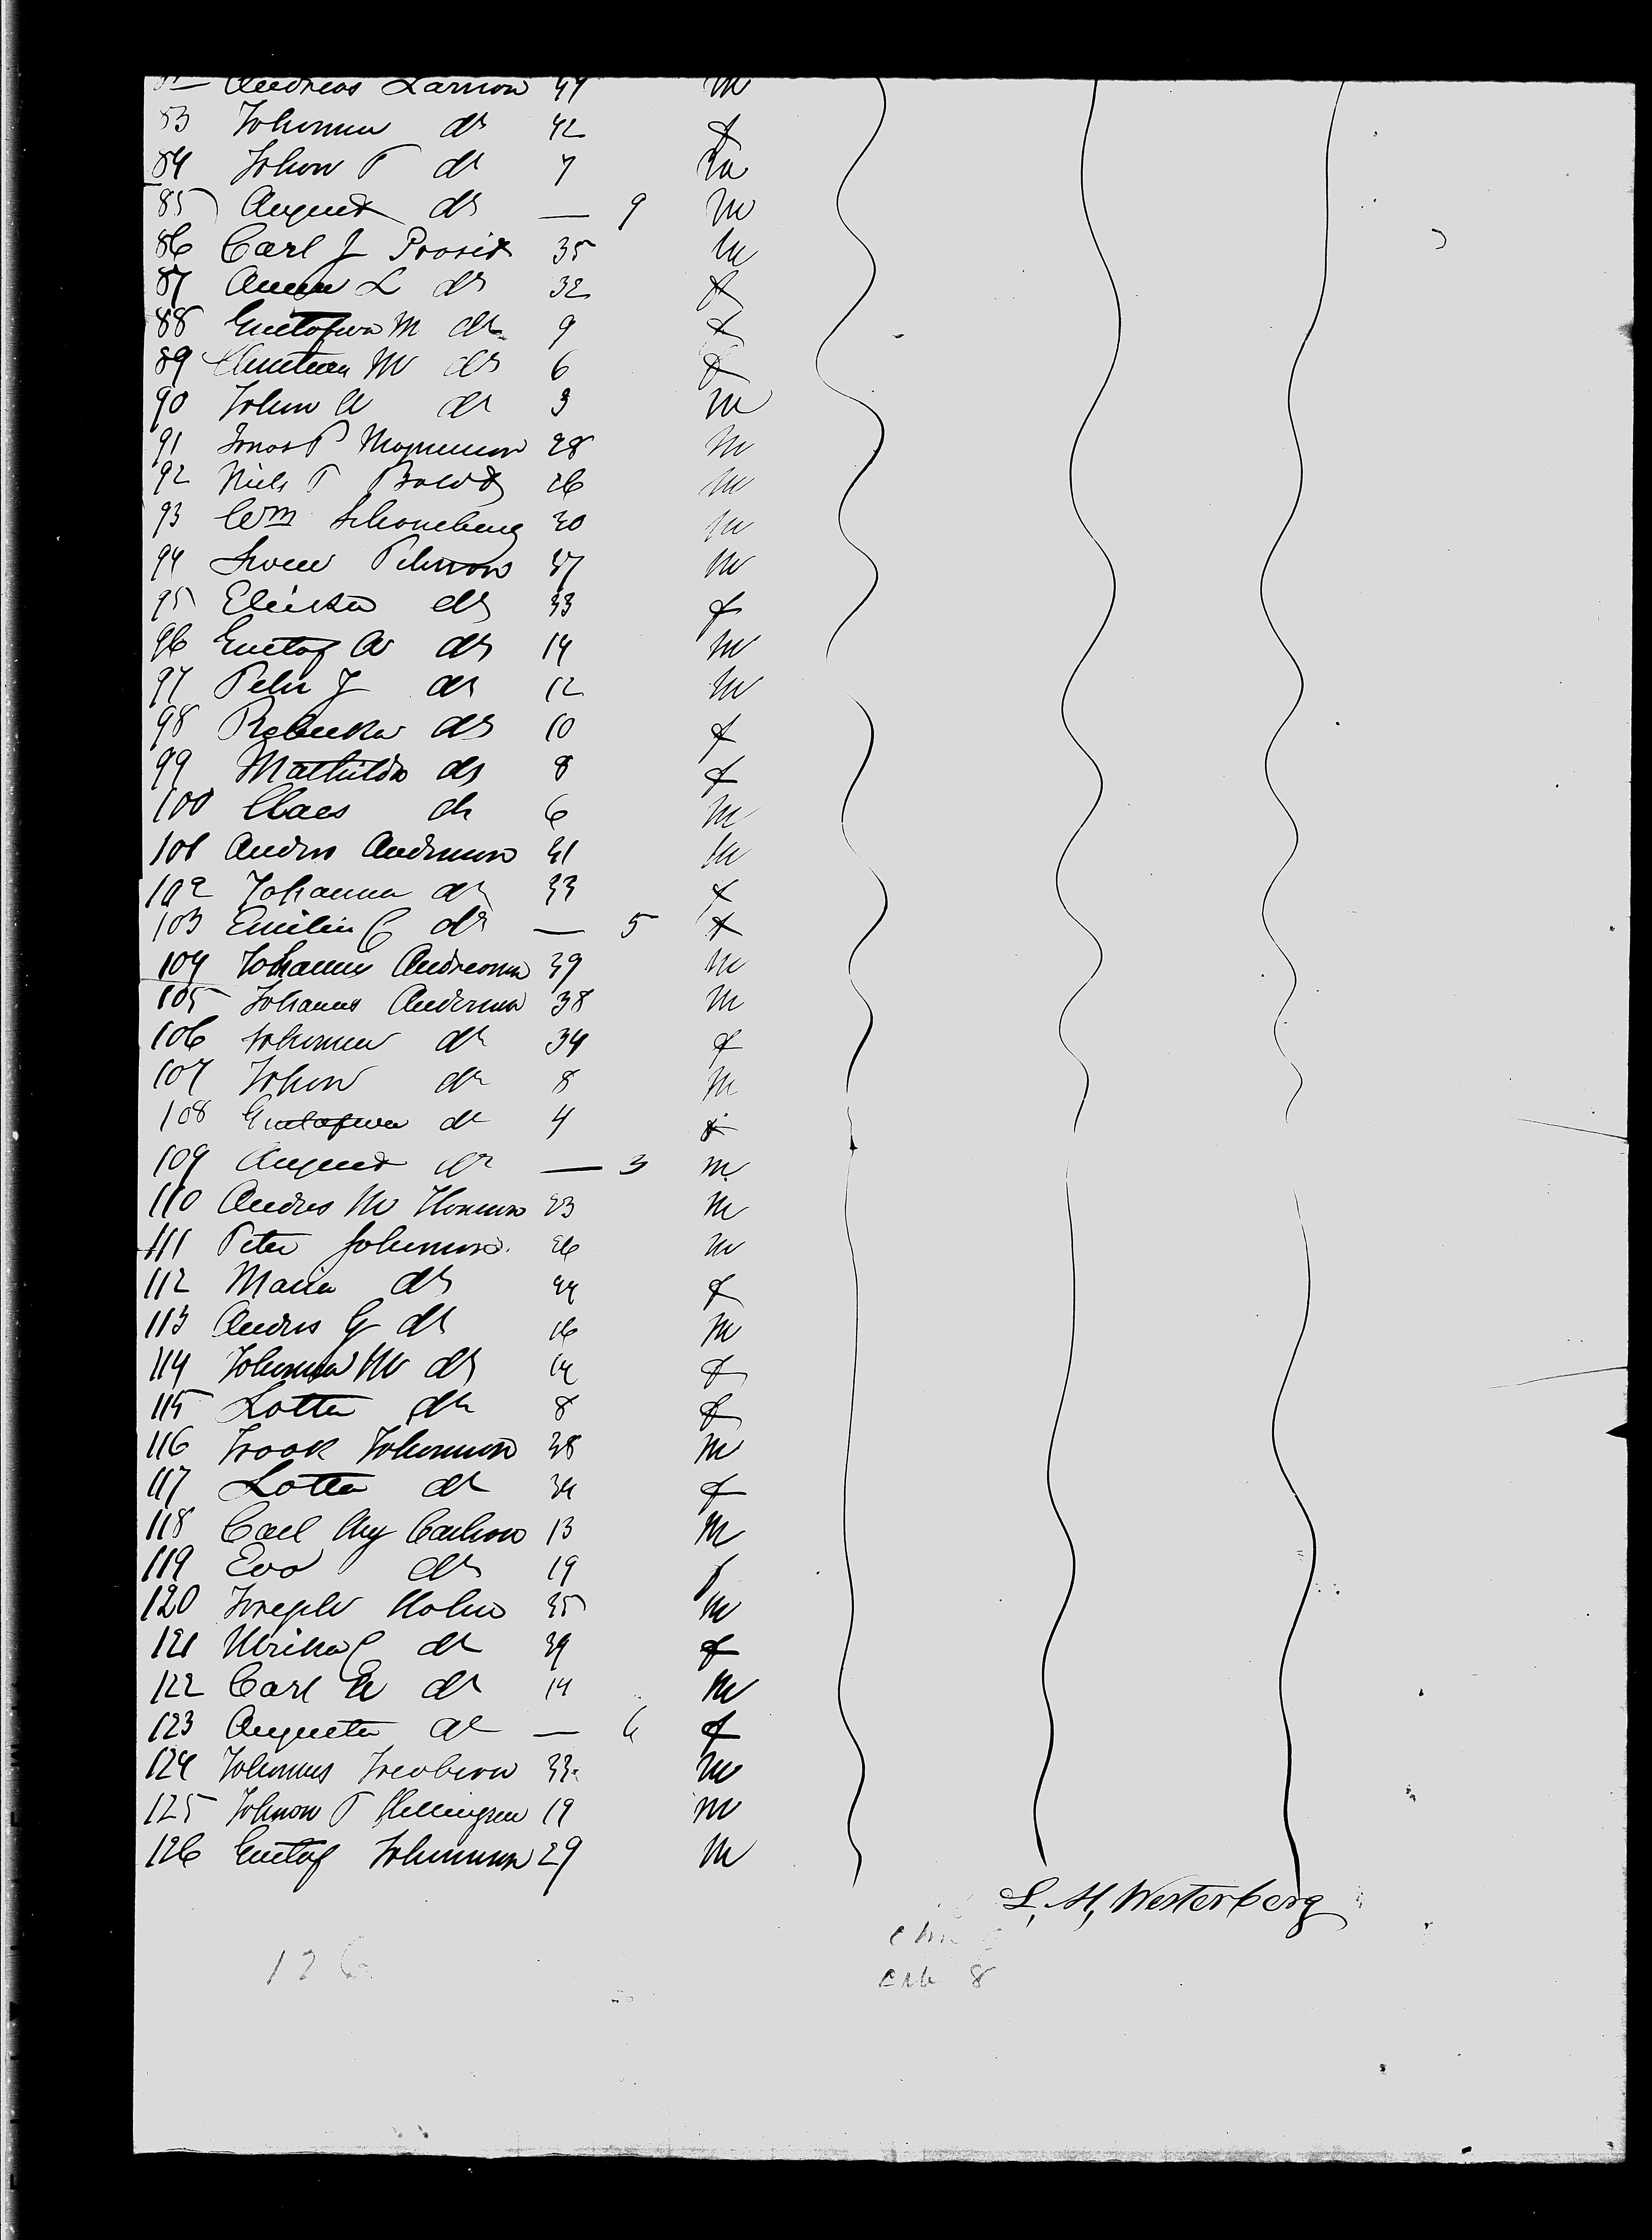 Andreas Larsson 44 m
83 Johanna do 42 f
84 Johan P do 7 m
85 August do — 9 m
86 Carl J Prosit 35 m
87 Anna L do 32 f
88 Gustafva M do 9 f
89 Christina M do 6 f
90 Johan A do 3 m
91 Jonas P Magnusson 28 m
92 Niels P 26 m
93 Wm Schoneberg 30 m
94 Swen Pehrson 37 m
95 do 33 f
96 Gustaf A do 14 m
97 Pehr J do 12 m
98 Rebecka do 10 f
99 Mathilda do 8 f
100 Claes do 6 m
101 Andrs Anderson 31 m
102 Johanna do 33 f
103 Emilia C do — 5 f
104 Johannes Andreasson 39 m
105 Johannes Anderson 38 m
106 Johanna do 34 f
107 Johan do 8 m
108 Gustafva do 4 f
109 August do — 3 m
110 Andrs M 23 m
111 Peter Johanson 46 m
112 Maria do 44 f
113 Andrs G do 16 m
114 Johanna M do 14 f
115 Lotta do 8 f
116 Isaak Johanson 38 m
117 Lotta do 34 f
118 Carl Aug Carlson 13 m
119 Eva do 19 f
120 Joseph Holm 35 m
121 Ulrika C do 39 f
122 Carl E do 14 m
123 Augusta do — 6 f
124 Johannes Jacobson 33 m
125 Johan P Hellingren 19 m
126 Gustaf Johanson 29 m
L. M. Westerberg
126
8